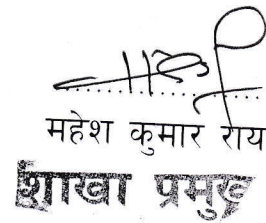 महेश कुमार राय
शाखा प्रमुख